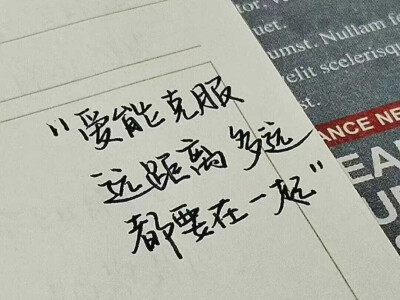 "爱能克服
远距离多远
都要在一起"
uet.
umst. Nullam f
elit scelerisq
ss.
ANCE NE
EA